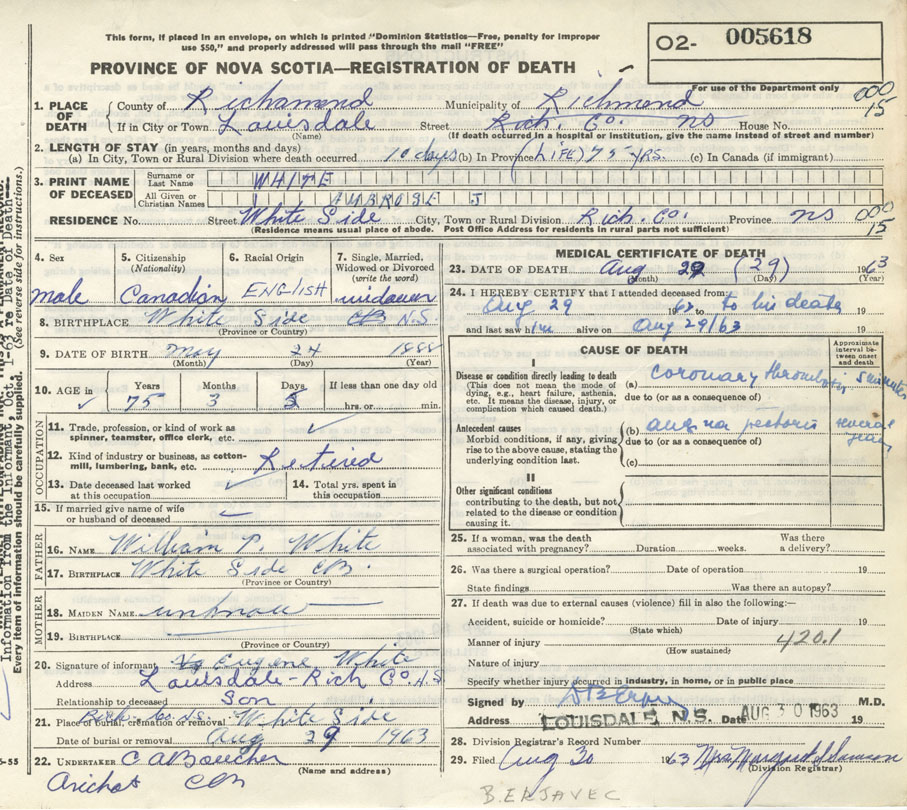 This form, if placed in an envelope, on which is printed "Dominion Statistics—Free, penalty for improper
use $50," and properly addressed will pass through the mail "FREE"
O2- 005618
PROVINCE OF NOVA SCOTIA—REGISTRATION OF DEATH
For use of the Department only
000
15
1. PLACE OF DEATH
County of Richamond Municipality of Richmond
If in City or Town Louisdale Street Rich. Co. NS House No.
(Name) (If death occurred in a hospital or institution, give the name instead of street and number)
2. LENGTH OF STAY (in years, months and days)
(a) In City, Town or Rural Division where death occurred 10 days (b) In Province (LIFE) 75 YRS. (c) In Canada (if immigrant)
3. PRINT NAME OF DECEASED
Surname or Last Name WHITE
All Given or Christian Names AMBROSE J
RESIDENCE No. Street White Side City, Town or Rural Division Rich. Co. Province NS 000
15
(Residence means usual place of abode. Post Office Address for residents in rural parts not sufficient)
4. Sex
male
5. Citizenship
(Nationality)
Canadian
6. Racial Origin
ENGLISH
7. Single, Married,
Widowed or Divorced
(write the word)
widower
8. BIRTHPLACE White Side CB N.S
(Province or Country)
9. DATE OF BIRTH May 24 1888
(Month) (Day) (Year)
10. AGE in Years Months Days If less than one day old
75 3 5 hrs. or min.
OCCUPATION
11. Trade, profession, or kind of work as
spinner, teamster, office clerk, etc.
12. Kind of industry or business, as cotton-
mill, lumbering, bank, etc. Retired
13. Date deceased last worked
at this occupation
14. Total yrs. spent in
this occupation
15. If married give name of wife
or husband of deceased
FATHER
16. NAME William P. White
17. BIRTHPLACE White Side CB.
(Province or Country)
MOTHER
18. MAIDEN NAME unknow
19. BIRTHPLACE
(Province or Country)
20. Signature of informant Eugene White
Address Louisdale - Rich Co. N.S
Relationship to deceased Son
Rich. Co. N.S.
21. Place of burial, cremation or removal White Side
Date of burial or removal Aug 29 1963
22. UNDERTAKER C A Boucher
(Name and address)
Arichat CB
MEDICAL CERTIFICATE OF DEATH
23. DATE OF DEATH Aug 29 (29) 1963
(Month) (Day) (Year)
24. I HEREBY CERTIFY that I attended deceased from:
Aug 29 1963 to to his death 19
and last saw him alive on Aug 29/63 19
CAUSE OF DEATH
Approximate
interval between
onset
and death
I
Disease or condition directly leading to death
(This does not mean the mode of
dying, e.g., heart failure, asthenia,
etc. It means the disease, injury, or
complication which caused death.)
(a) coronary thrombosis 5 minutes
due to (or as a consequence of)
Antecedent causes
Morbid conditions, if any, giving
rise to the above cause, stating the
underlying condition last.
(b) angina pectoris several years
due to (or as a consequence of)
(c)
II
Other significant conditions
contributing to the death, but not
related to the disease or condition
causing it.
25. If a woman, was the death
associated with pregnancy? Duration weeks. Was there
a delivery?
26. Was there a surgical operation? Date of operation 19
State findings Was there an autopsy?
27. If death was due to external causes (violence) fill in also the following:—
Accident, suicide or homicide? Date of injury 19
(State which)
Manner of injury 420.1
(How sustained)
Nature of injury
Specify whether injury occurred in industry, in home, or in public place
Signed by M.D.
Address LOUISDALE, N.S. Date AUG 30 1963 19
28. Division Registrar's Record Number
29. Filed Aug 30 1963 Mrs. Margaret
(Division Registrar)
B. ERJAVEC
Information from the Informant, Oct. 1-63 re Date of Death
Every item of information should be carefully supplied.
(See reverse side for instructions.)